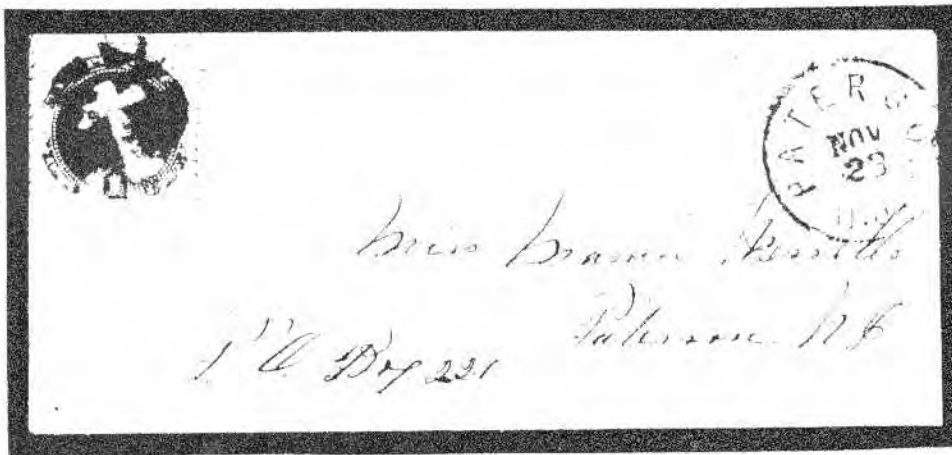 PATERSO
NOV
23
N.J.
Miss
Paterson N J
P O Box 221